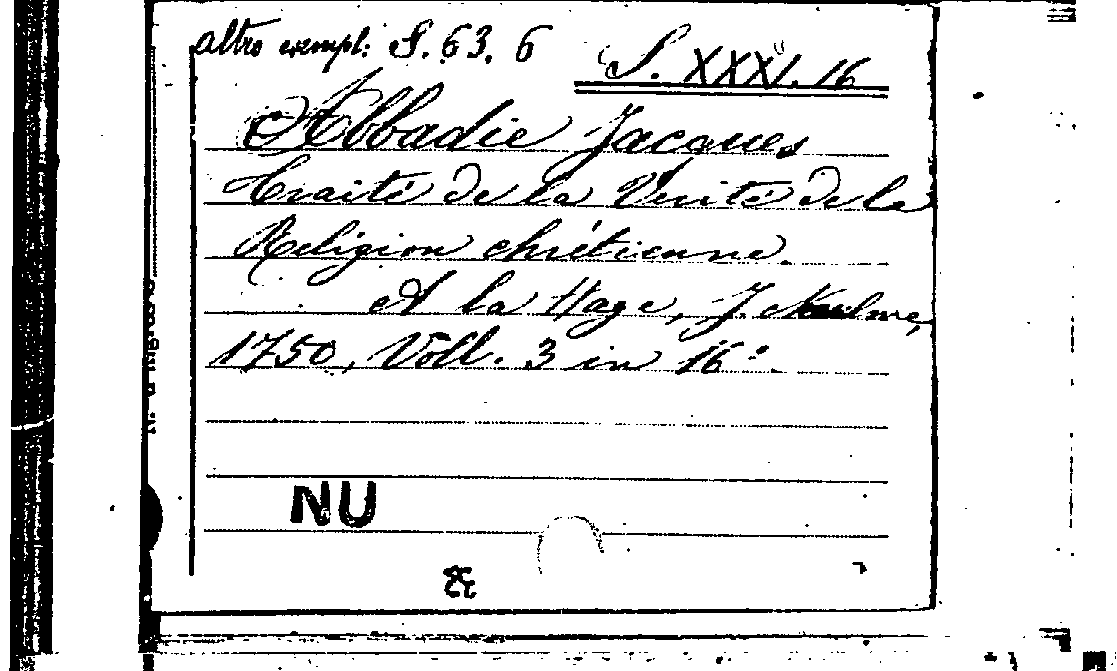 altro exempl: S. 63. 6
S. XXXI. 16
Abbadie Jacques
Traité de la Verité de la
Religion chrétienne.
A la Haye, J. Neulme,
1750, Voll. 3 in 16°.
NU